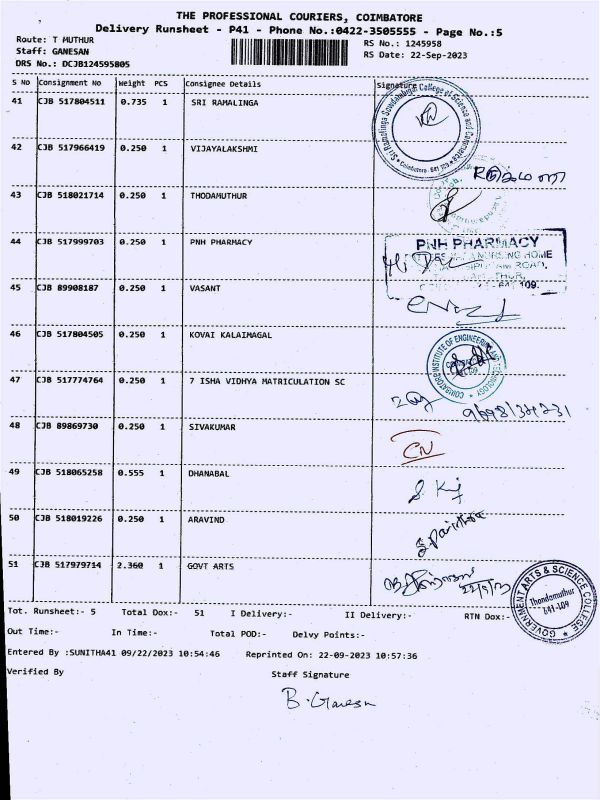 THE PROFESSIONAL COURIERS, COIMBATORE
Delivery Runsheet - P41 - Phone No.:0422-3505555 - Page No.:5
Route: T MUTHUR RS No.: 1245958
Staff: GANESAN RS Date: 22-Sep-2023
DRS No.: DCJB124595805
S NO Consignment No Weight PCS Consignee Details Signature
41 CJB 517804511 0.735 1 SRI RAMALINGA
Sri Ramalinga Sowdambigai College of Science and Commerce
Coimbatore - 641 109
42 CJB 517966419 0.250 1 VIJAYALAKSHMI
43 CJB 518021714 0.250 1 THODAMUTHUR
44 CJB 517999703 0.250 1 PNH PHARMACY
PNH PHARMACY
NURSING HOME
ROAD,
109.
45 CJB 89908187 0.250 1 VASANT
46 CJB 517804505 0.250 1 KOVAI KALAIMAGAL
COIMBATORE INSTITUTE OF ENGINEERING AND TECHNOLOGY
47 CJB 517774764 0.250 1 7 ISHA VIDHYA MATRICULATION SC
48 CJB 89869730 0.250 1 SIVAKUMAR
CN
49 CJB 518065258 0.555 1 DHANABAL
50 CJB 518019226 0.250 1 ARAVIND
51 CJB 517979714 2.360 1 GOVT ARTS
22/9/23
GOVERNMENT ARTS & SCIENCE COLLEGE
Thondamuthur
641-109
Tot. Runsheet:- 5 Total Dox:- 51 I Delivery:- II Delivery:- RTN Dox:-
Out Time:- In Time:- Total POD:- Delvy Points:-
Entered By :SUNITHA41 09/22/2023 10:54:46 Reprinted On: 22-09-2023 10:57:36
Verified By Staff Signature
B. Ganesn